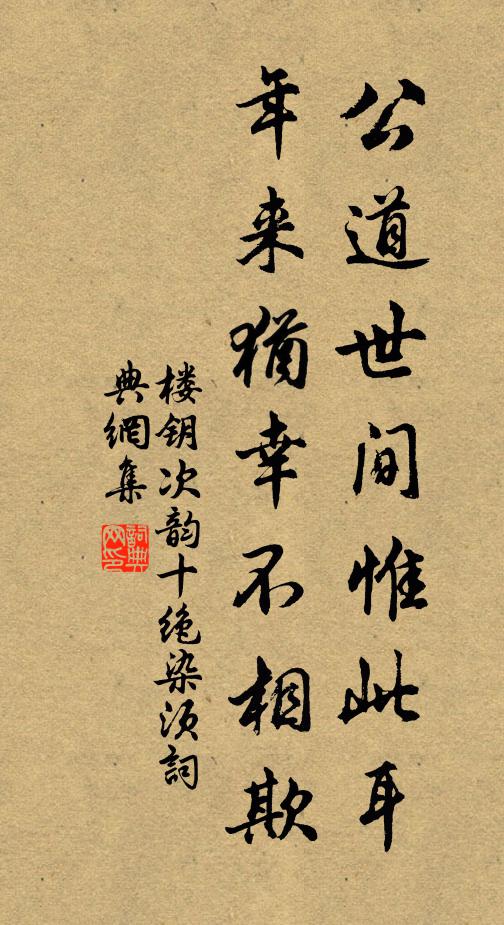 公道世间惟此耳
年来猶幸不相欺
楼钥次韵十绝染须詞
典網集
詞典網印